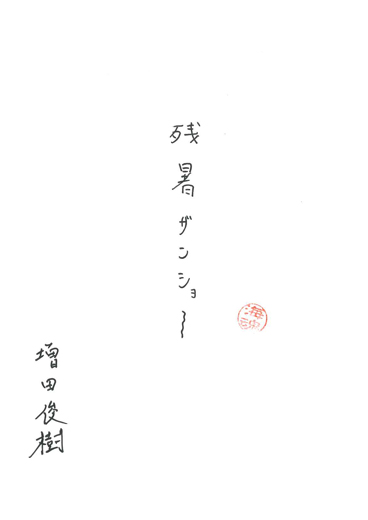 残暑ザンショ〜
増田俊樹